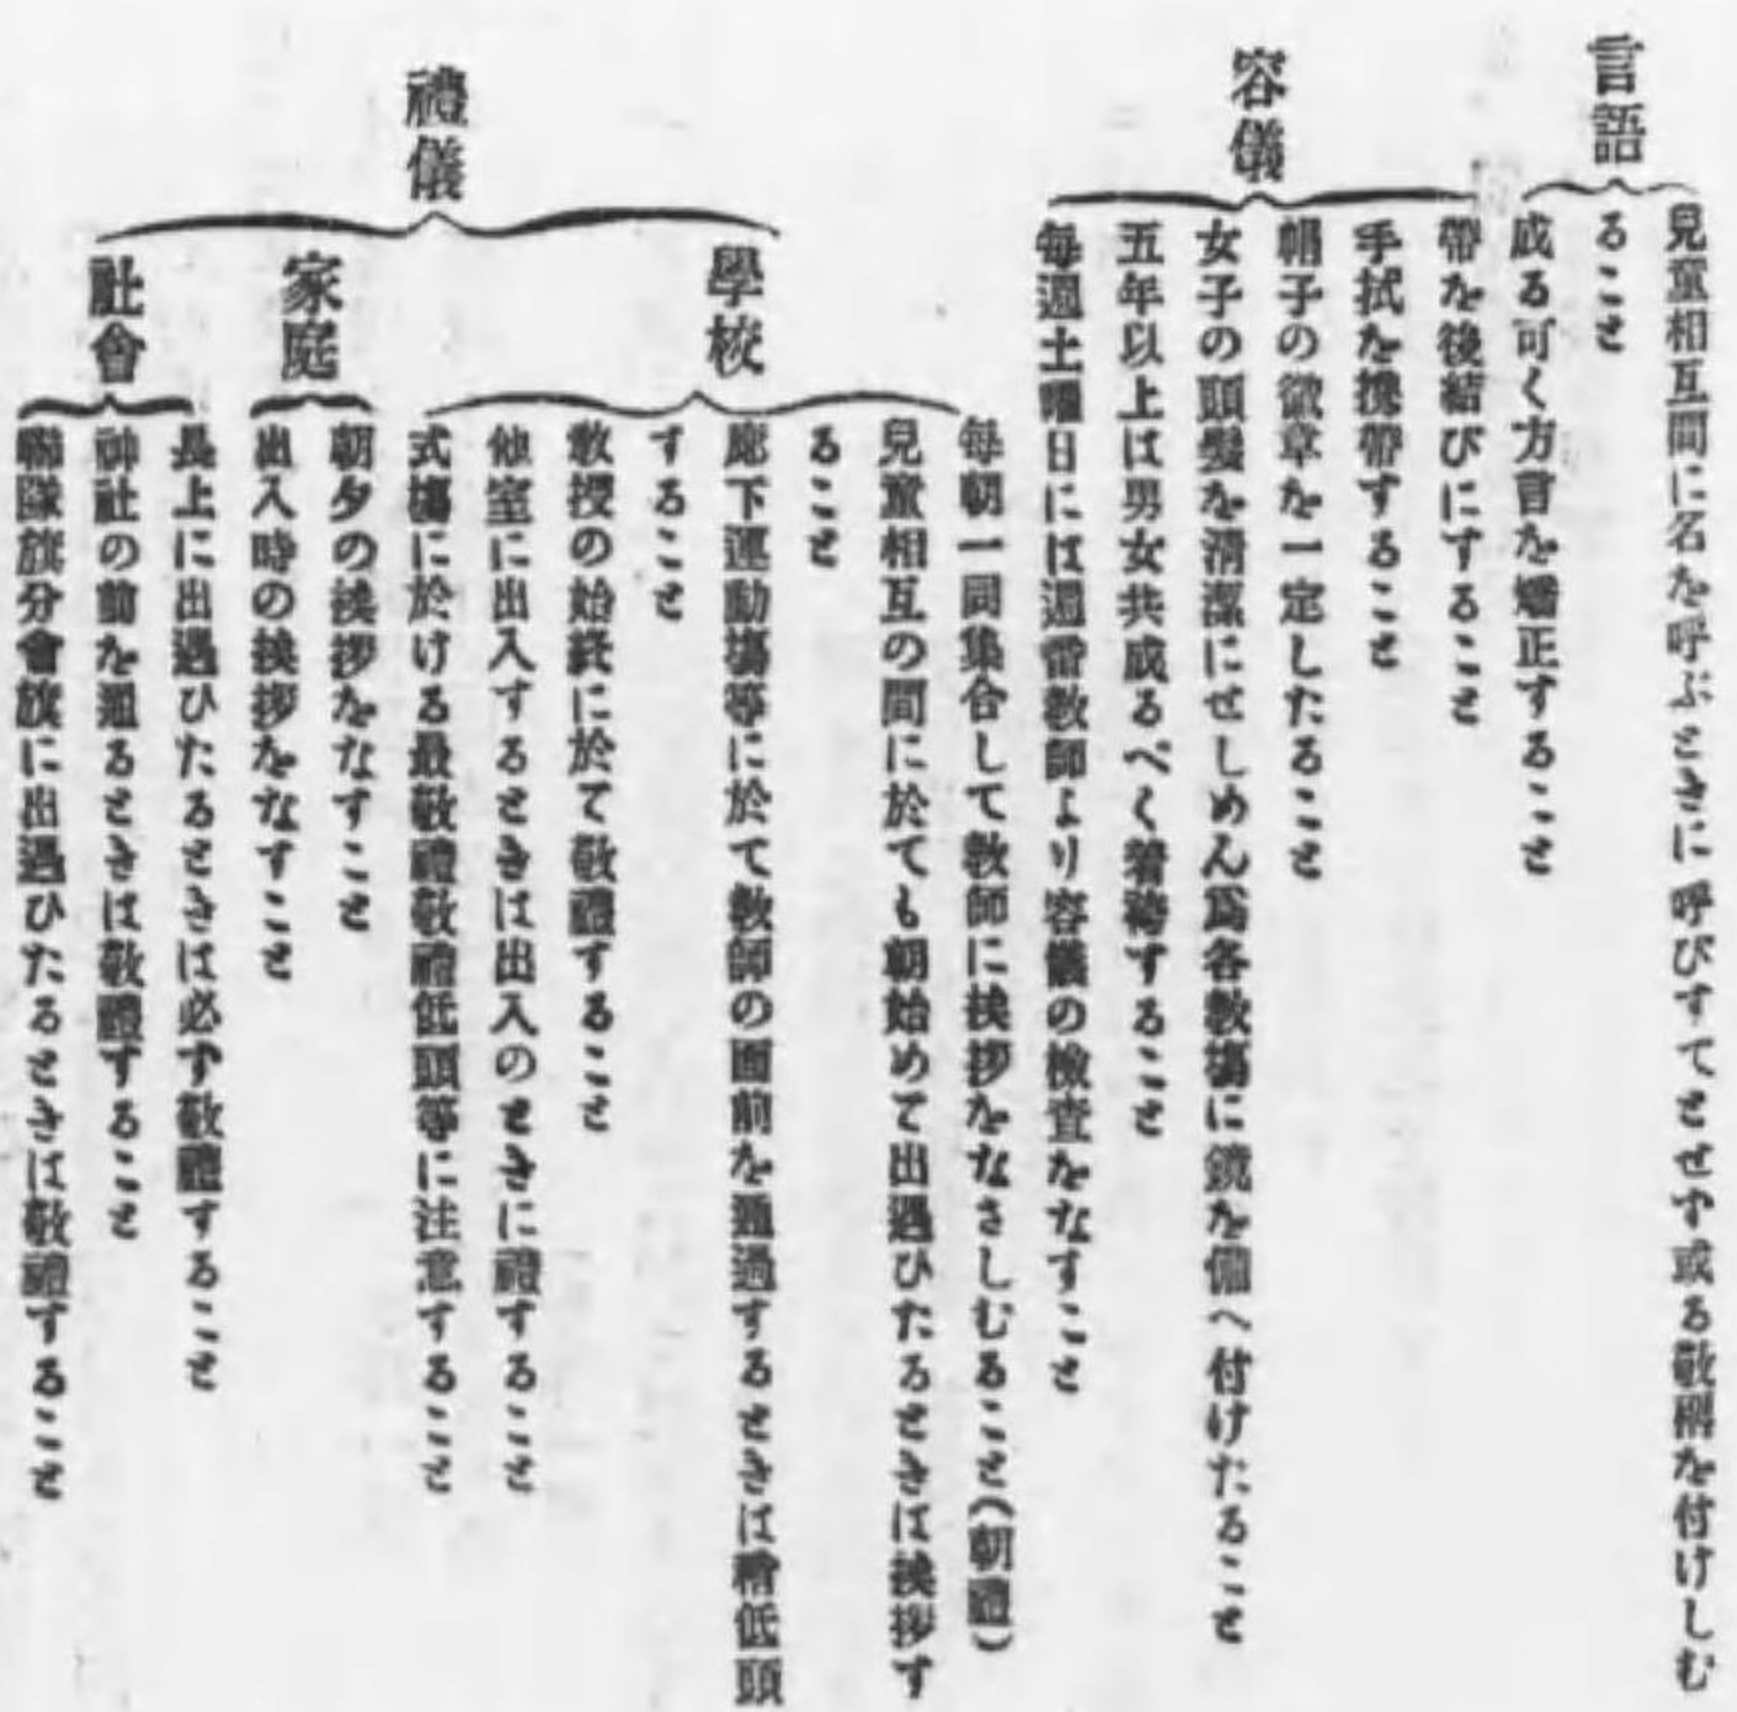 言語
兒童相互間に名を呼ぶときに呼びすてとせず或る敬稱を付けしむ
ること
成る可く方言を矯正すること
容儀
帶を後結びにすること
手拭を携帶すること
帽子の徽章を一定したること
女子の頭髮を淸潔にせしめん爲各敎塲に鏡を備へ付けたること
五年以上は男女共成るべく着袴すること
每週土曜日には週當敎師より容儀の檢査をなすこと
禮儀
學校
每朝一同集合して敎師に挨拶をなさしむること(朝禮)
兒童相互の間に於ても朝始めて出遇ひたるときは挨拶す
ること
廊下運動塲等に於て敎師の面前を通過するときは稍低頭
すること
敎授の始終に於て敬禮すること
他室に出入するときは出入のときに禮すること
式塲に於ける最敬禮敬禮低頭等に注意すること
家庭
朝夕の挨拶をなすこと
出入時の挨拶をなすこと
社會
長上に出遇ひたるときは必ず敬禮すること
神社の前を通るときは敬禮すること
聯隊旗分會旗に出遇ひたるときは敬禮すること